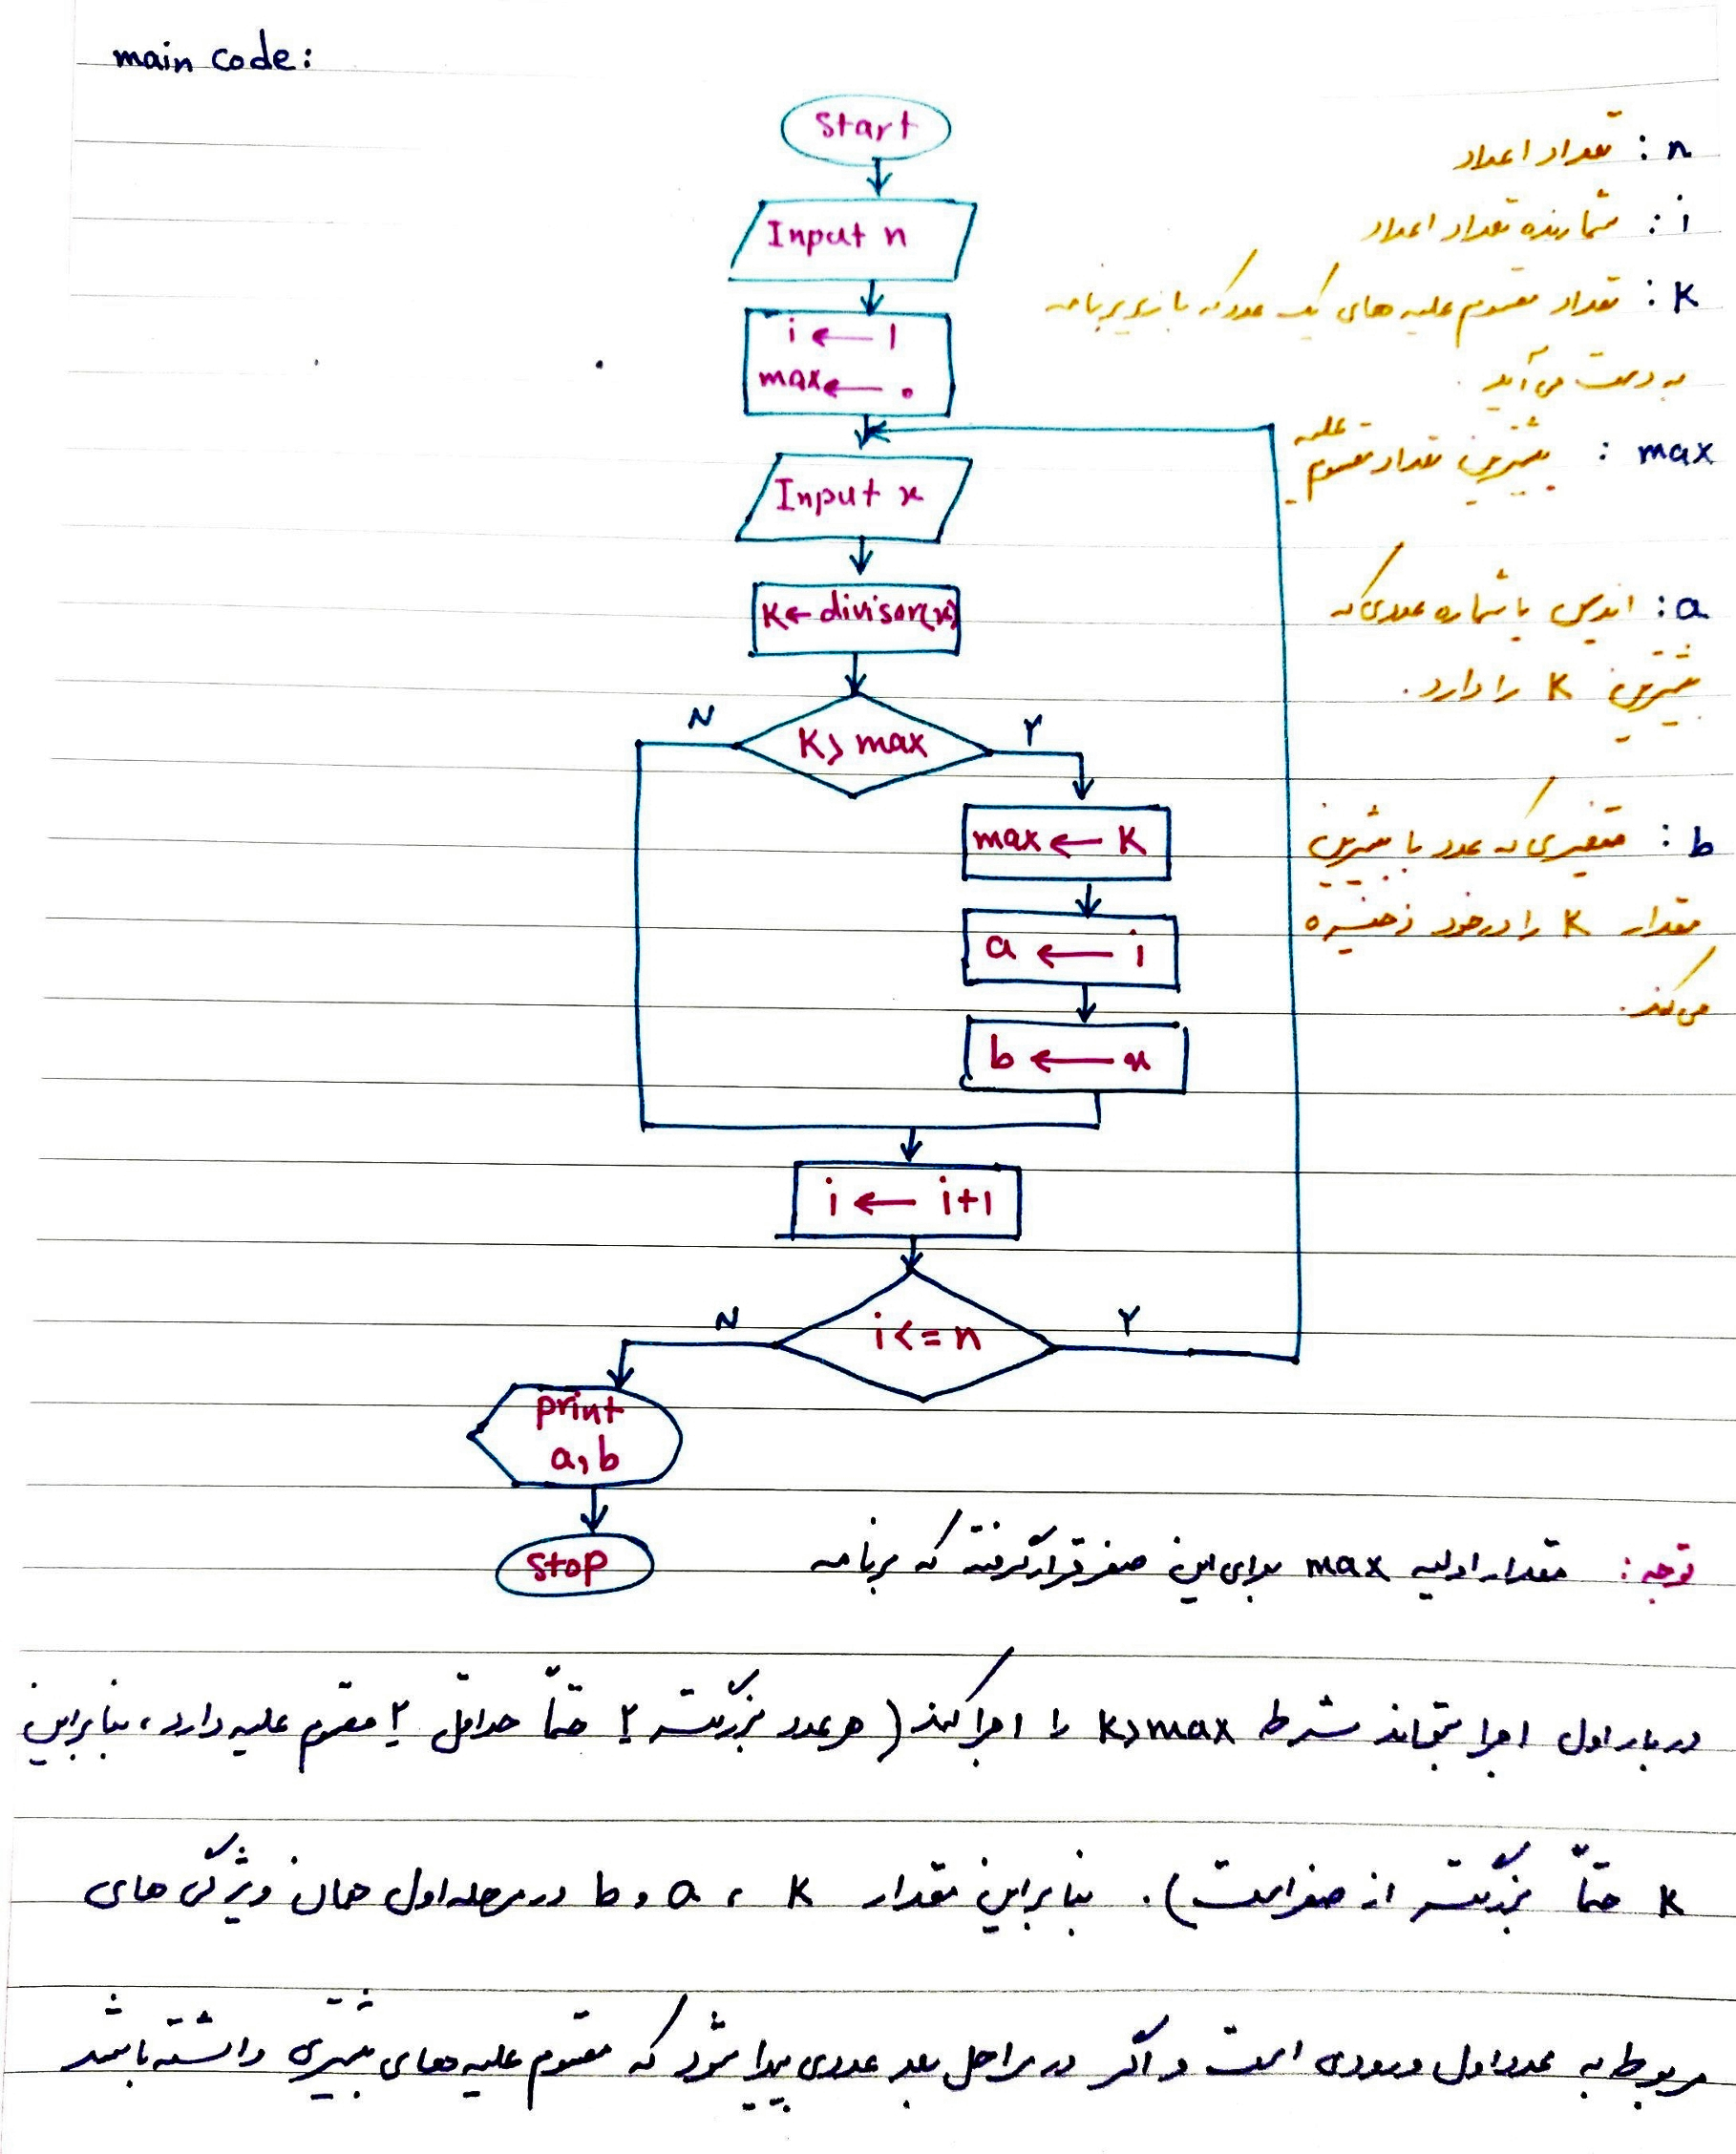 main code:
Start
Input n
i ← 1
max ← ۰
Input x
K ← divisor(x)
K > max
N
Y
max ← K
a ← i
b ← x
i ← i+1
i <= n
N
Y
print
a, b
stop
n : تعداد اعداد
i : شمارنده تعداد اعداد
K : تعداد مقسوم علیه های یک عدد که با زیربرنامه
به دست می آید.
max : بیشترین تعداد مقسوم علیه
a : اندیس یا شماره عددی که
بیشترین K را دارد.
b : متغیری که عدد با بیشترین
مقدار K را در خود ذخیره
می کند.
توجه : مقدار اولیه max برای این صفر قرار گرفته که برنامه
در بار اول اجرا بتواند شرط K>max را اجرا کند (هر عدد بزرگتر حتماً حداقل ۲ مقسوم علیه دارد، بنابراین
K حتماً بزرگتر از صفر است). بنابراین مقدار K ، a و b در مرحله اول همان ویژگی های
مربوط به عدد اول ورودی است و اگر در مراحل بعد عددی پیدا شود که مقسوم علیه های بیشتری داشته باشد